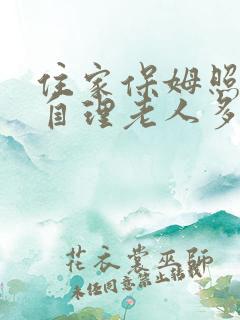 住家保姆照
自理老人多
花衣裳巫师
未经同意禁止转载